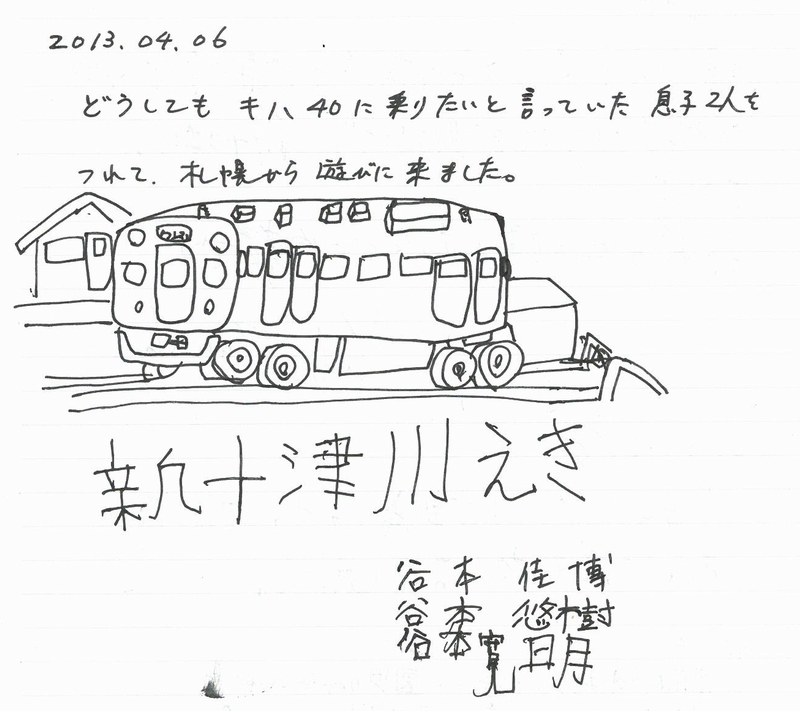 2013.04.06
どうしても キハ40に乗りたいと言っていた 息子2人を
つれて、札幌から遊びに来ました。
新十津川えき
谷本 佳博
谷本 悠樹
谷本 寛明